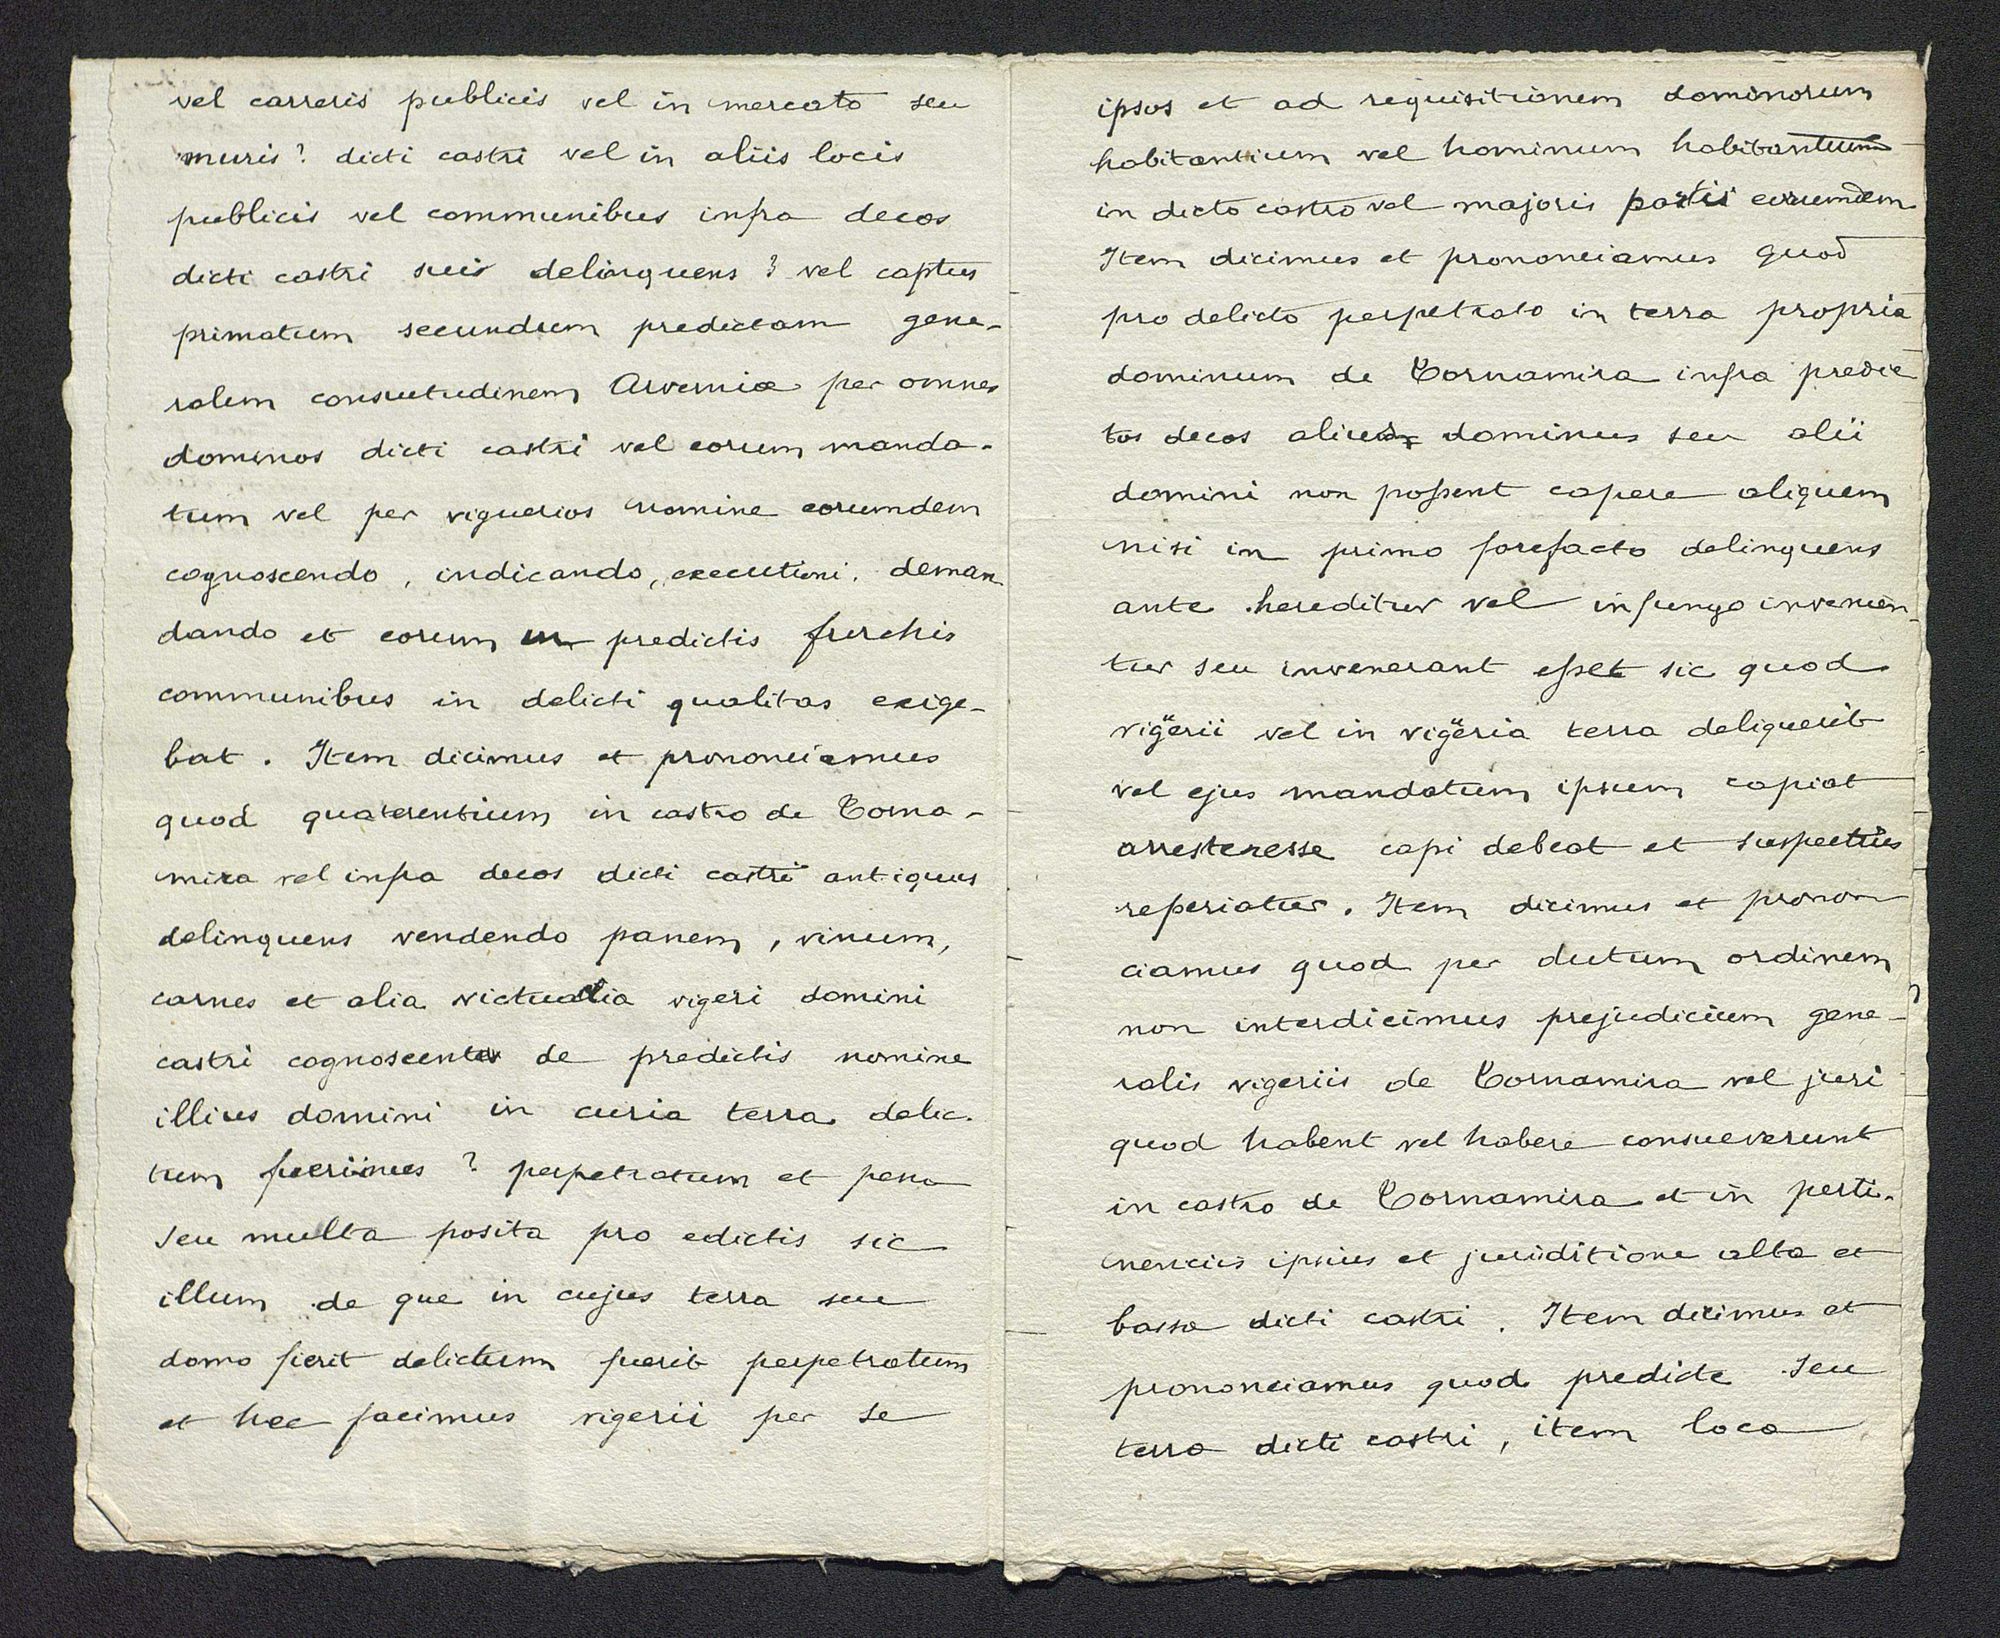 vel carreris publicis vel in mercato seu
muris ? dicti castri vel in aliis locis
publicis vel communibus infra decos
dicti castri suis delinquens ? vel captus
primatum secundum predictam gene-
ralem consuetudinem Arverniæ per omnes
dominos dicti castri vel eorum manda-
tum vel per viguerios nomine eorumdem
cognoscendo, indicando, executioni, deman
dando et eorum in predictis furchis
communibus in delicti qualitas exige-
bat. Item dicimus et prononciamus
quod quaterentium in castro de Torna-
mira vel infra decos dicti castri antiquus
delinquens vendendo panem, vinum,
carnes et alia victualia vigeri domini
castri cognoscenter de predictis nomine
illius domini in curia terra delic-
tum fuerimus ? perpetratum et pena
seu multa posita pro edictis sic
illum de que in cujus terra seu
domo fierit delictum fuerit perpetratum
et hec facimus vigerii per se
ipsos et ad requisitionem dominorum
habitantium vel hominum habitantium
in dicto castro vel majoris partis eorumdem
Item dicimus et prononciamus quod
pro delicto perpetrato in terra propria
dominum de Tornamira infra predic
tos decos alicui dominus seu alii
domini non possent capere aliquem
nisi in primo forefacto delinquens
ante hereditur vel infungo invenien-
tur seu invenerant esset sic quod
vigërii vel in vigëria terra deliquerit
vel ejus mandatum ipsum capiat
arresteresse capi debeat et suspectus
reperiatur. Item dicimus et pronon
ciamus quod per dutum ordinem
non interdicimus prejudicium gene-
ralis vigeriis de Tornamira vel juri
quod habent vel habere consueverunt
in castro de Tornamira et in perti-
nenciis ipsius et juriiditione alta et
bassa dicti castri. Item dicimus et
prononciamus quod predicte seu
terra dicti castri, item loca